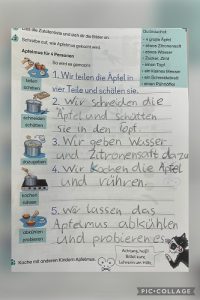 Lest die Zutatenliste und seht dir die Bilder an.
Schreibe auf, wie Apfelmus gekocht wird.
Apfelmus für 4 Personen
Du brauchst:
- 4 große Äpfel
- etwas Zitronensaft
- etwas Wasser
- Zucker, Zimt
- einen Topf
- ein kleines Messer
- ein Schneidebrett
- einen Pürierstab
So wird es gemacht:
1. Wir teilen die Äpfel in
vier Teile und schälen sie.
teilen
schälen
2. Wir schneiden die
Äpfel und schütten
sie in den Topf.
schneiden
schütten
3. Wir geben Wasser
und Zitronensaft dazu
dazugeben
4. Wir kochen die Äpfel
und rühren.
kochen
rühren
5. Wir lassen das
Apfelmus abkühlen
und probieren es.
abkühlen
probieren
Achtung, heiß!
Bittet eure
Lehrerin um Hilfe.
Koche mit anderen Kindern Apfelmus.
PIC•COLLAGE